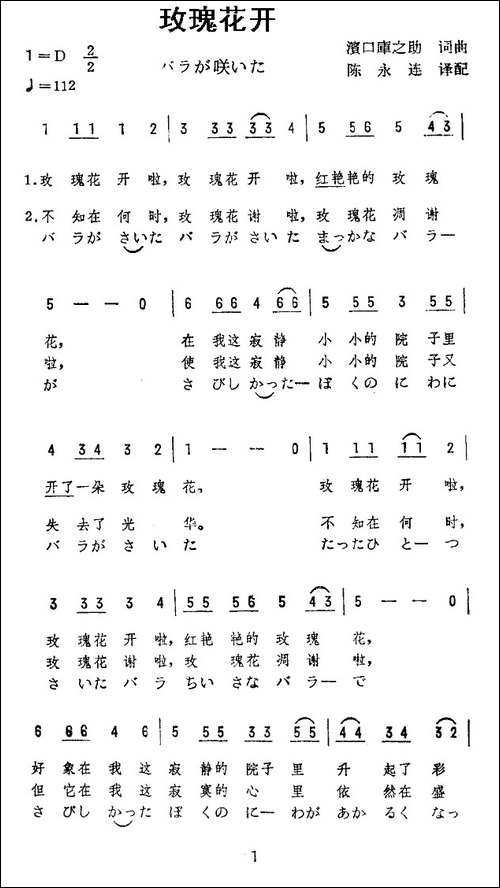 玫瑰花开
1=D 2/2
濱口庫之助 词曲
バラが咲いた
陈永连 译配
♩=112
1 11 1 2 | 3 33 33 4 | 5 56 5 43 |
1.玫 瑰花 开 啦, 玫 瑰花 开 啦, 红艳艳的 玫 瑰
2.不 知在 何 时, 玫 瑰花 谢 啦, 玫 瑰花 凋 谢
バ ラが さいた バ ラがさい た まっかな バ ラー
5 — — 0 | 6 66 4 66 | 5 55 3 55 |
花, 在 我这 寂 静 小 小的 院 子里
啦, 使 我这 寂 静 小 小的 院 子又
が さ びし かった ーぼくの に わに
4 34 3 2 | 1 — — 0 | 1 11 11 2 |
开了一朵 玫 瑰 花, 玫 瑰花 开 啦,
失 去了 光 华。 不 知在 何 时,
バ ラが さ い た たったひ とー つ
3 33 3 4 | 55 56 5 43 | 5 — — 0 |
玫 瑰花 开 啦, 红艳 艳的 玫 瑰 花,
玫 瑰花 谢 啦, 玫 瑰花 凋 谢 啦,
さ いた バ ラ ちい さな バ ラー で
6 66 4 6 | 5 55 33 55 | 44 34 32 |
好 象在 我 这 寂 静的 院子 里 升 起了 彩
但 它在 我 这 寂 寞的 心 里 依 然在 盛
さ びし かった ぼくの にー わが あかる くなっ
1